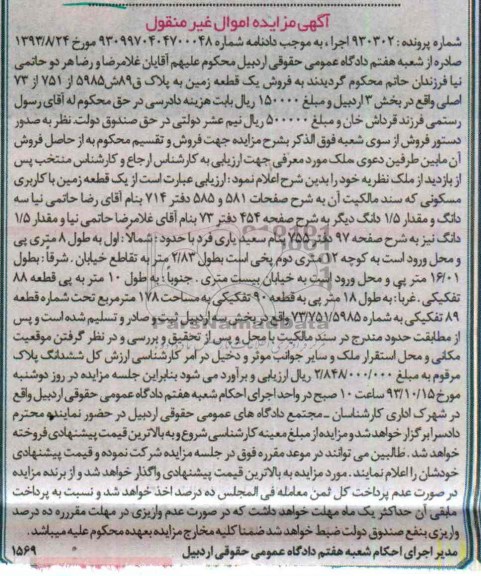 آگهی مزایده اموال غیر منقول
شماره پرونده : ۹۳۰۳۰۲ اجرا، به موجب دادنامه شماره ۹۳۰۹۹۷۰۴۰۴۷۰۰۰۴۸ مورخ ۱۳۹۳/۸/۲۴
صادره از شعبه هفتم دادگاه عمومی حقوقی اردبیل محکوم علیهم آقایان غلامرضا و رضا هر دو حاتمی
نیا فرزندان حاتم محکوم گردیدند به فروش یک قطعه زمین به پلاک ق۸۹ش۵۹۸۵ از ۷۵۱ از ۷۳
اصلی واقع در بخش ۳ اردبیل و مبلغ ۱۵۰۰۰۰ ریال بابت هزینه دادرسی در حق محکوم له آقای رسول
رستمی فرزند قرداش خان و مبلغ ۵۰۰۰۰۰ ریال نیم عشر دولتی در حق صندوق دولت. نظر به صدور
دستور فروش از سوی شعبه فوق الذکر بشرح مزایده جهت فروش و تقسیم محکوم به از حاصل فروش
آن مابین طرفین دعوی ملک مورد معرفی جهت ارزیابی به کارشناس ارجاع و کارشناس منتخب پس
از بازدید از ملک نظریه خود را بدین شرح اعلام نمود : ارزیابی عبارت است از یک قطعه زمین با کاربری
مسکونی که سند مالکیت آن به شرح صفحات ۵۸۱ و ۵۸۵ دفتر ۷۱۴ بنام آقای رضا حاتمی نیا سه
دانگ و مقدار ۱/۵ دانگ دیگر به شرح صفحه ۴۵۴ دفتر ۷۳ بنام آقای غلامرضا حاتمی نیا و مقدار ۱/۵
دانگ نیز به شرح صفحه ۹۷ دفتر ۷۵۵ بنام سعید یاری فرد با حدود : شمالا : اول به طول ۸ متری پی
و محل ورود است به کوچه ۱۲ متری دوم پخی است بطول ۲/۸۳ متر به تقاطع خیابان . شرقا : بطول
۱۶/۰۱ متر پی و محل ورود است به خیابان بیست متری . جنوبا : به طول ۱۰ متر به پی قطعه ۸۸
تفکیکی . غربا : به طول ۱۸ متر پی به قطعه ۹۰ تفکیکی به مساحت ۱۷۸ مترمربع تحت شماره قطعه
۸۹ تفکیکی به شماره ۷۳/۷۵۱/۵۹۸۵ واقع در بخش سه اردبیل ثبت و صادر و تسلیم شده است و پس
از مطابقت حدود مندرج در سند مالکیت با محل و پس از تحقیق و بررسی و در نظر گرفتن موقعیت
مکانی و محل استقرار ملک و سایر جوانب موثر و دخیل در امر کارشناسی ارزش کل ششدانگ پلاک
مرقوم به مبلغ ۲/۸۴۸/۰۰۰/۰۰۰ ریال ارزیابی و برآورد می شود بنابراین جلسه مزایده در روز دوشنبه
مورخ ۹۳/۱۰/۱۵ ساعت ۱۰ صبح در واحد اجرای احکام شعبه هفتم دادگاه عمومی حقوقی اردبیل واقع
در شهرک اداری کارشناسان - مجتمع دادگاه های عمومی حقوقی اردبیل در حضور نماینده محترم
دادسرا برگزار خواهد شد و مزایده از مبلغ معینه کارشناسی شروع و به بالاترین قیمت پیشنهادی فروخته
خواهد شد . طالبین می توانند در موعد مقرره فوق در جلسه مزایده شرکت نموده و قیمت پیشنهادی
خودشان را اعلام نمایند . مورد مزایده به بالاترین قیمت پیشنهادی واگذار خواهد شد و از برنده مزایده
در صورت عدم پرداخت کل ثمن معامله فی المجلس ده درصد اخذ خواهد شد و نسبت به پرداخت
مابقی آن حداکثر یک ماه مهلت خواهد داشت که در صورت عدم واریزی در مهلت مقرره ده درصد
واریزی بنفع صندوق دولت ضبط خواهد شد ضمنا کلیه مخارج مزایده بعهده محکوم علیه میباشد .
مدیر اجرای احکام شعبه هفتم دادگاه عمومی حقوقی اردبیل ۱۵۶۹